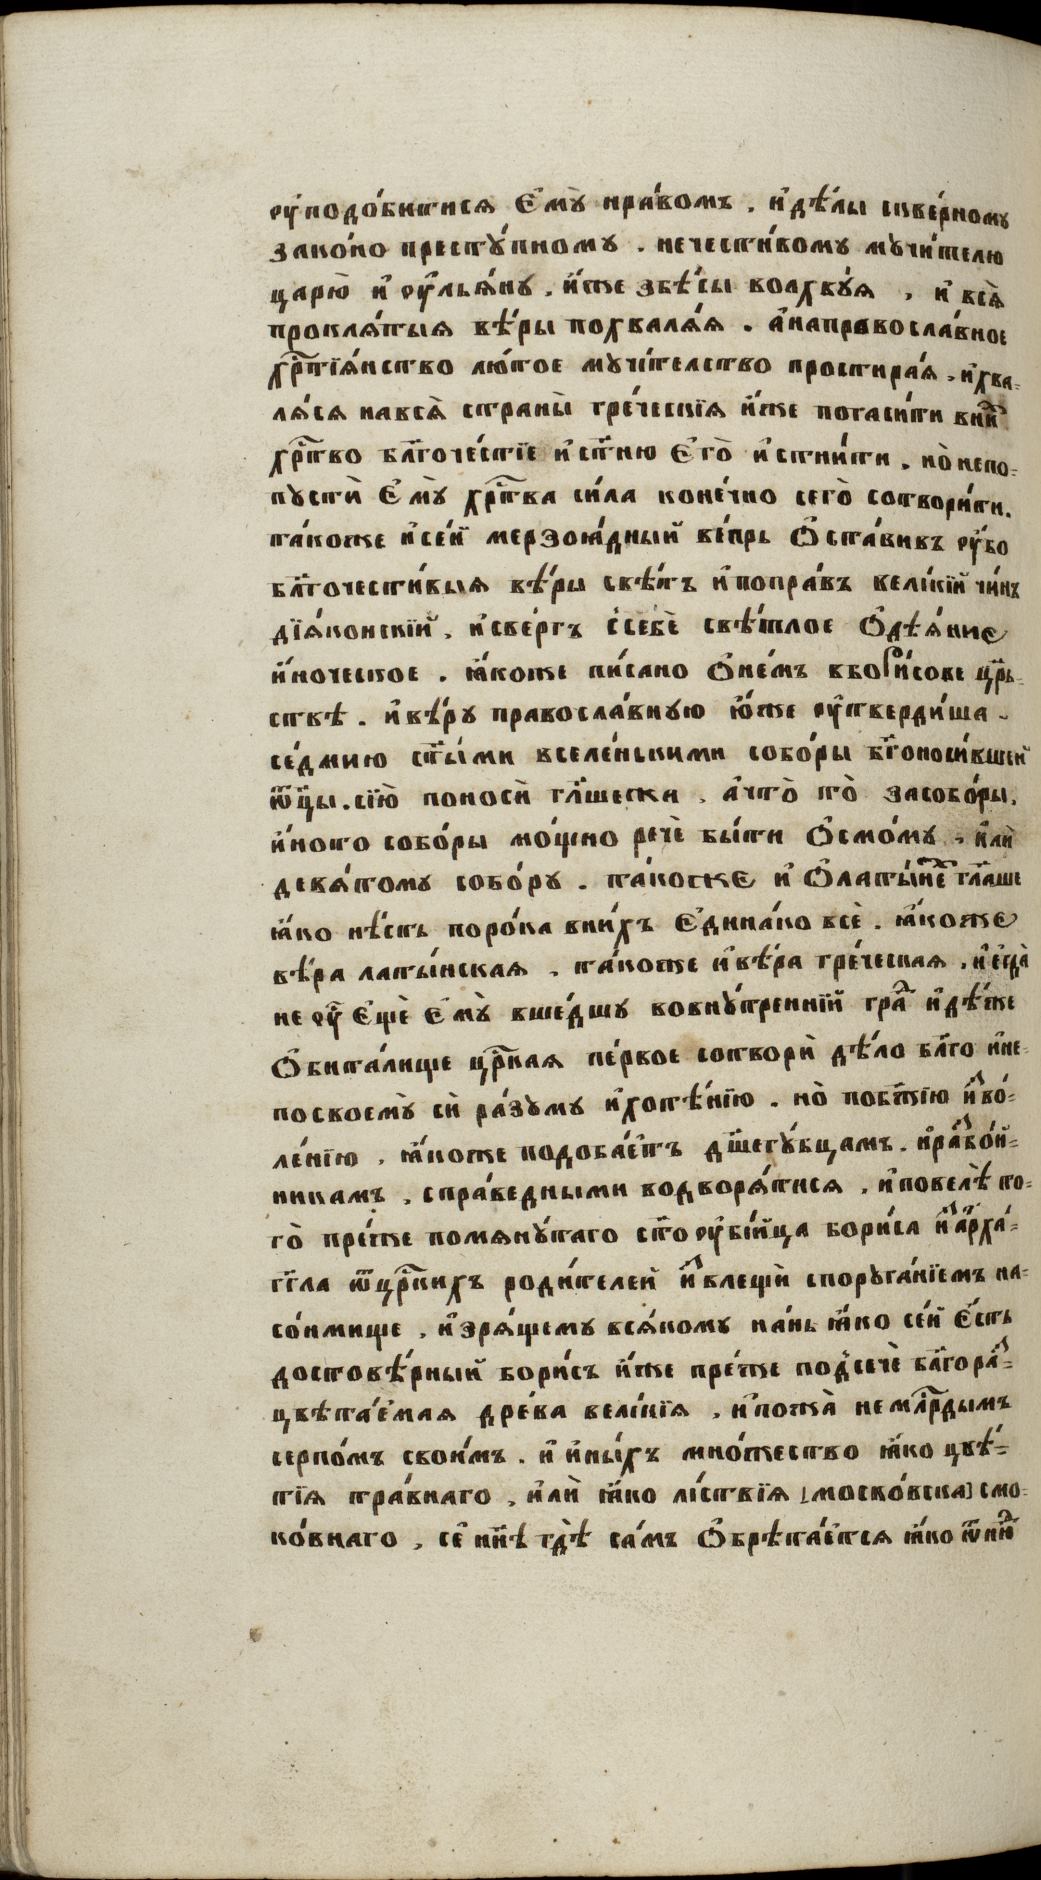 ᲂу҆подо́битисѧ Є҆мꙋ̀ нра́вомъ . и҆дѣ́лы скве́рномꙋ
зако́но престꙋ́пномꙋ . нечести́вомꙋ мꙋчи́телю
царю̀ и҆ ᲂу҆льѧ́нꙋ . и҆́же збѣ́сы волхвꙋ́ѧ , и҆ всѧ̀
проклѧ́тыѧ вѣ́ры похвалѧ́ѧ . а҆направосла́вное
хрⷭ҇тїѧ́нство лю́тое мꙋчи́телство простира́ѧ , и҆хва-
лѧ́сѧ навсѧ̀ страны̀ гре́ческїѧ и҆́же погаси́ти вни́ⷯ
хрⷭ҇тво бл҃гоче́стїе и҆ст҃ню Є҆го̀ и҆стни́ти . но̀ непо-
пꙋстѝ Є҆мꙋ̀ хрⷭ҇тва си́ла коне́чно сего̀ сотвори́ти .
та́коже и҆се́й мерзоꙗ́дный ве́прь Ѻ҆ста́вивъ ᲂу҆́бо
бл҃гочести́выѧ вѣ́ры свѣ́тъ и҆попра́въ вели́кїй чи́нъ
дїѧ́конскїй , и҆све́ргъ ссебѐ свѣ́тлое Ѻ҆дѣѧ́ние
и҆́ноческое . ꙗ҆́коже пи́сано Ѻ҆не́мъ вбори́сове црⷭ҇ь-
ствѣ . и҆вѣ́рꙋ правосла́внꙋю ю҆́же ᲂу҆тверди́ша .
се́дмию ст҃ы́ми вселе́ньскими собо́ры бг҃оноси́вшей
ѿц҃ы . сїю̀ поносѝ гл҃шески , а҆что̀ то̀ засобо́ры ,
и҆́ного собо́ры мо́щно речѐ бы́ти Ѻ҆смо́мꙋ , и҆лѝ
девѧ́томꙋ собо́рꙋ . та́коже и҆ Ѻ҆латы́неⷯ гл҃аше
ꙗ҆́ко нѣ́сть поро́ка вни́хъ Є҆дина́ко всѐ . ꙗ҆́коже
вѣ́ра латы́нская , та́коже и҆вѣ́ра гре́ческая , и҆є҆гда̀
не ᲂу҆ Є҆щѐ Є҆мꙋ̀ вше́дшꙋ вовнꙋ́тренний граⷣ и҆дѣ́же
Ѻ҆бита́лище црⷭ҇кая пе́рвое сотворѝ дѣ́ло бл҃го и҆не-
посвоемꙋ̀ сѝ ра́зꙋмꙋ и҆хотѣ́нїю . но̀ побж҃їю и҆ⷥво́-
ле́нїю , ꙗ҆́коже подоба́етъ дш҃егꙋ́бцамъ . и҆раⷥбо́й-
никамъ , спра́ведными водворѧ́тисѧ , и҆повелѣ̀ то-
го̀ пре́же помѧнꙋ́таго ст҃о ᲂу҆би́йца бори́са и҆ⷥа҆рха́-
гг҃ла ѿцрⷭ҇кихъ роди́телей и҆ⷥвлещѝ споруга́нїемъ на-
со́нмище , и҆зрѧ́щемꙋ всѧ́комꙋ нань ꙗ҆́ко се́й є҆́сть
достовѣ́рный бори́съ и҆́же пре́же подсечѐ бл҃гораⷥ-
цвѣта́емая дре́ва вели́кїя , и҆пожа̀ немлⷭ҇рдымъ
серпо́мъ свои́мъ . и҆ и҆ны́хъ мно́жество ꙗ҆́ко цвѣ́-
тїя тра́внаго , и҆лѝ ꙗ҆́ко ли́ствїя [моско́вска] смо-
ко́внаго , сѐ нн҃ѣ гдѣ̀ са́мъ Ѻ҆брѣта́етсѧ ꙗ҆́ко ѿни́ⷯ